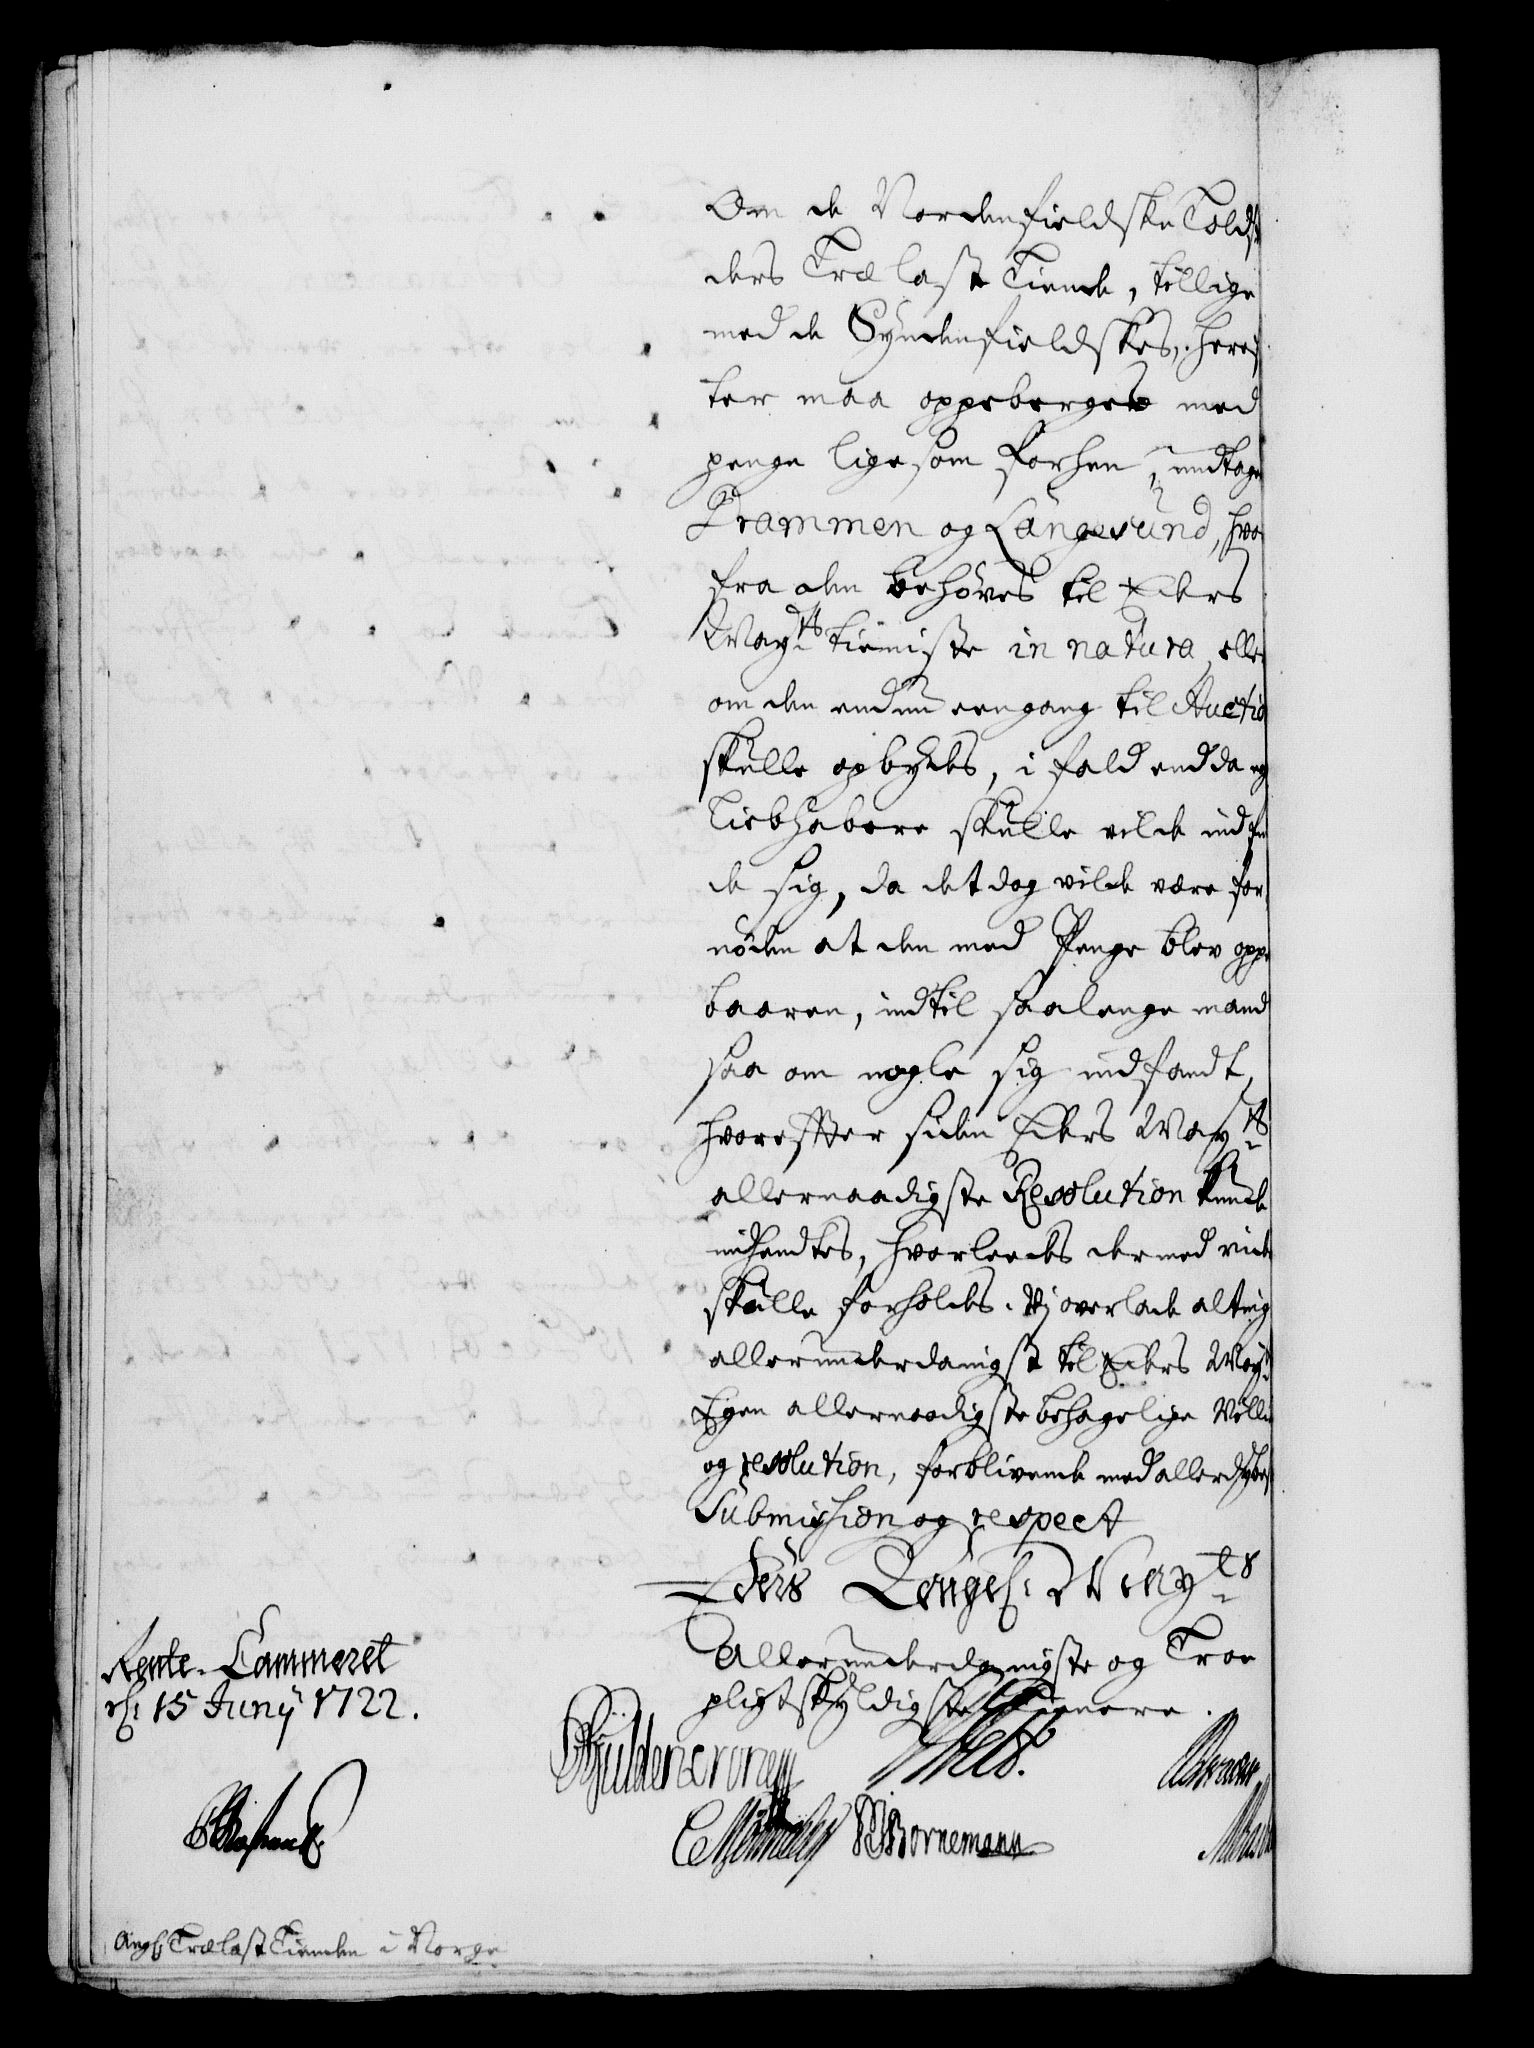 Om de Nordenfieldske Toldst
ders Trælast Tiende, tillige
med de Syndenfieldskes, heref
ter maa oppeberges med
penge ligesom forhen, undtagen
Drammen og Langesund, hvor
fra den behøves til Eders
Mayts tieniste in natura, eller
om den endnu eengang til Auctio
skulle opbydes, i fald endda ey
Liebhabere skulle vilde indfin
de sig, da det dog vilde være for
nøden at den med Penge blev oppe
baaren, indtil saalenge mand
saa om nogle sig indfandt,
hvorefter siden Eders Mayts
allernaadigste Resolution kunde
indhendtes, hvorleedes dermed vide
skulle forholdes. Vj overlade alting
allerunderdanigst til Eders Mayts
Egen allernaadigste behagelige Villie
og resolution, forblivende med allerdybest
Submission og respect
Eders Kongel: Mayts
Allerunderdanigste og Troe
pligtskyldigste Tienere.
Rente-Cammeret
d: 15 Junij 1722.
Güldencronen
Bornemann
Ang: Trælast Tienden i Norge